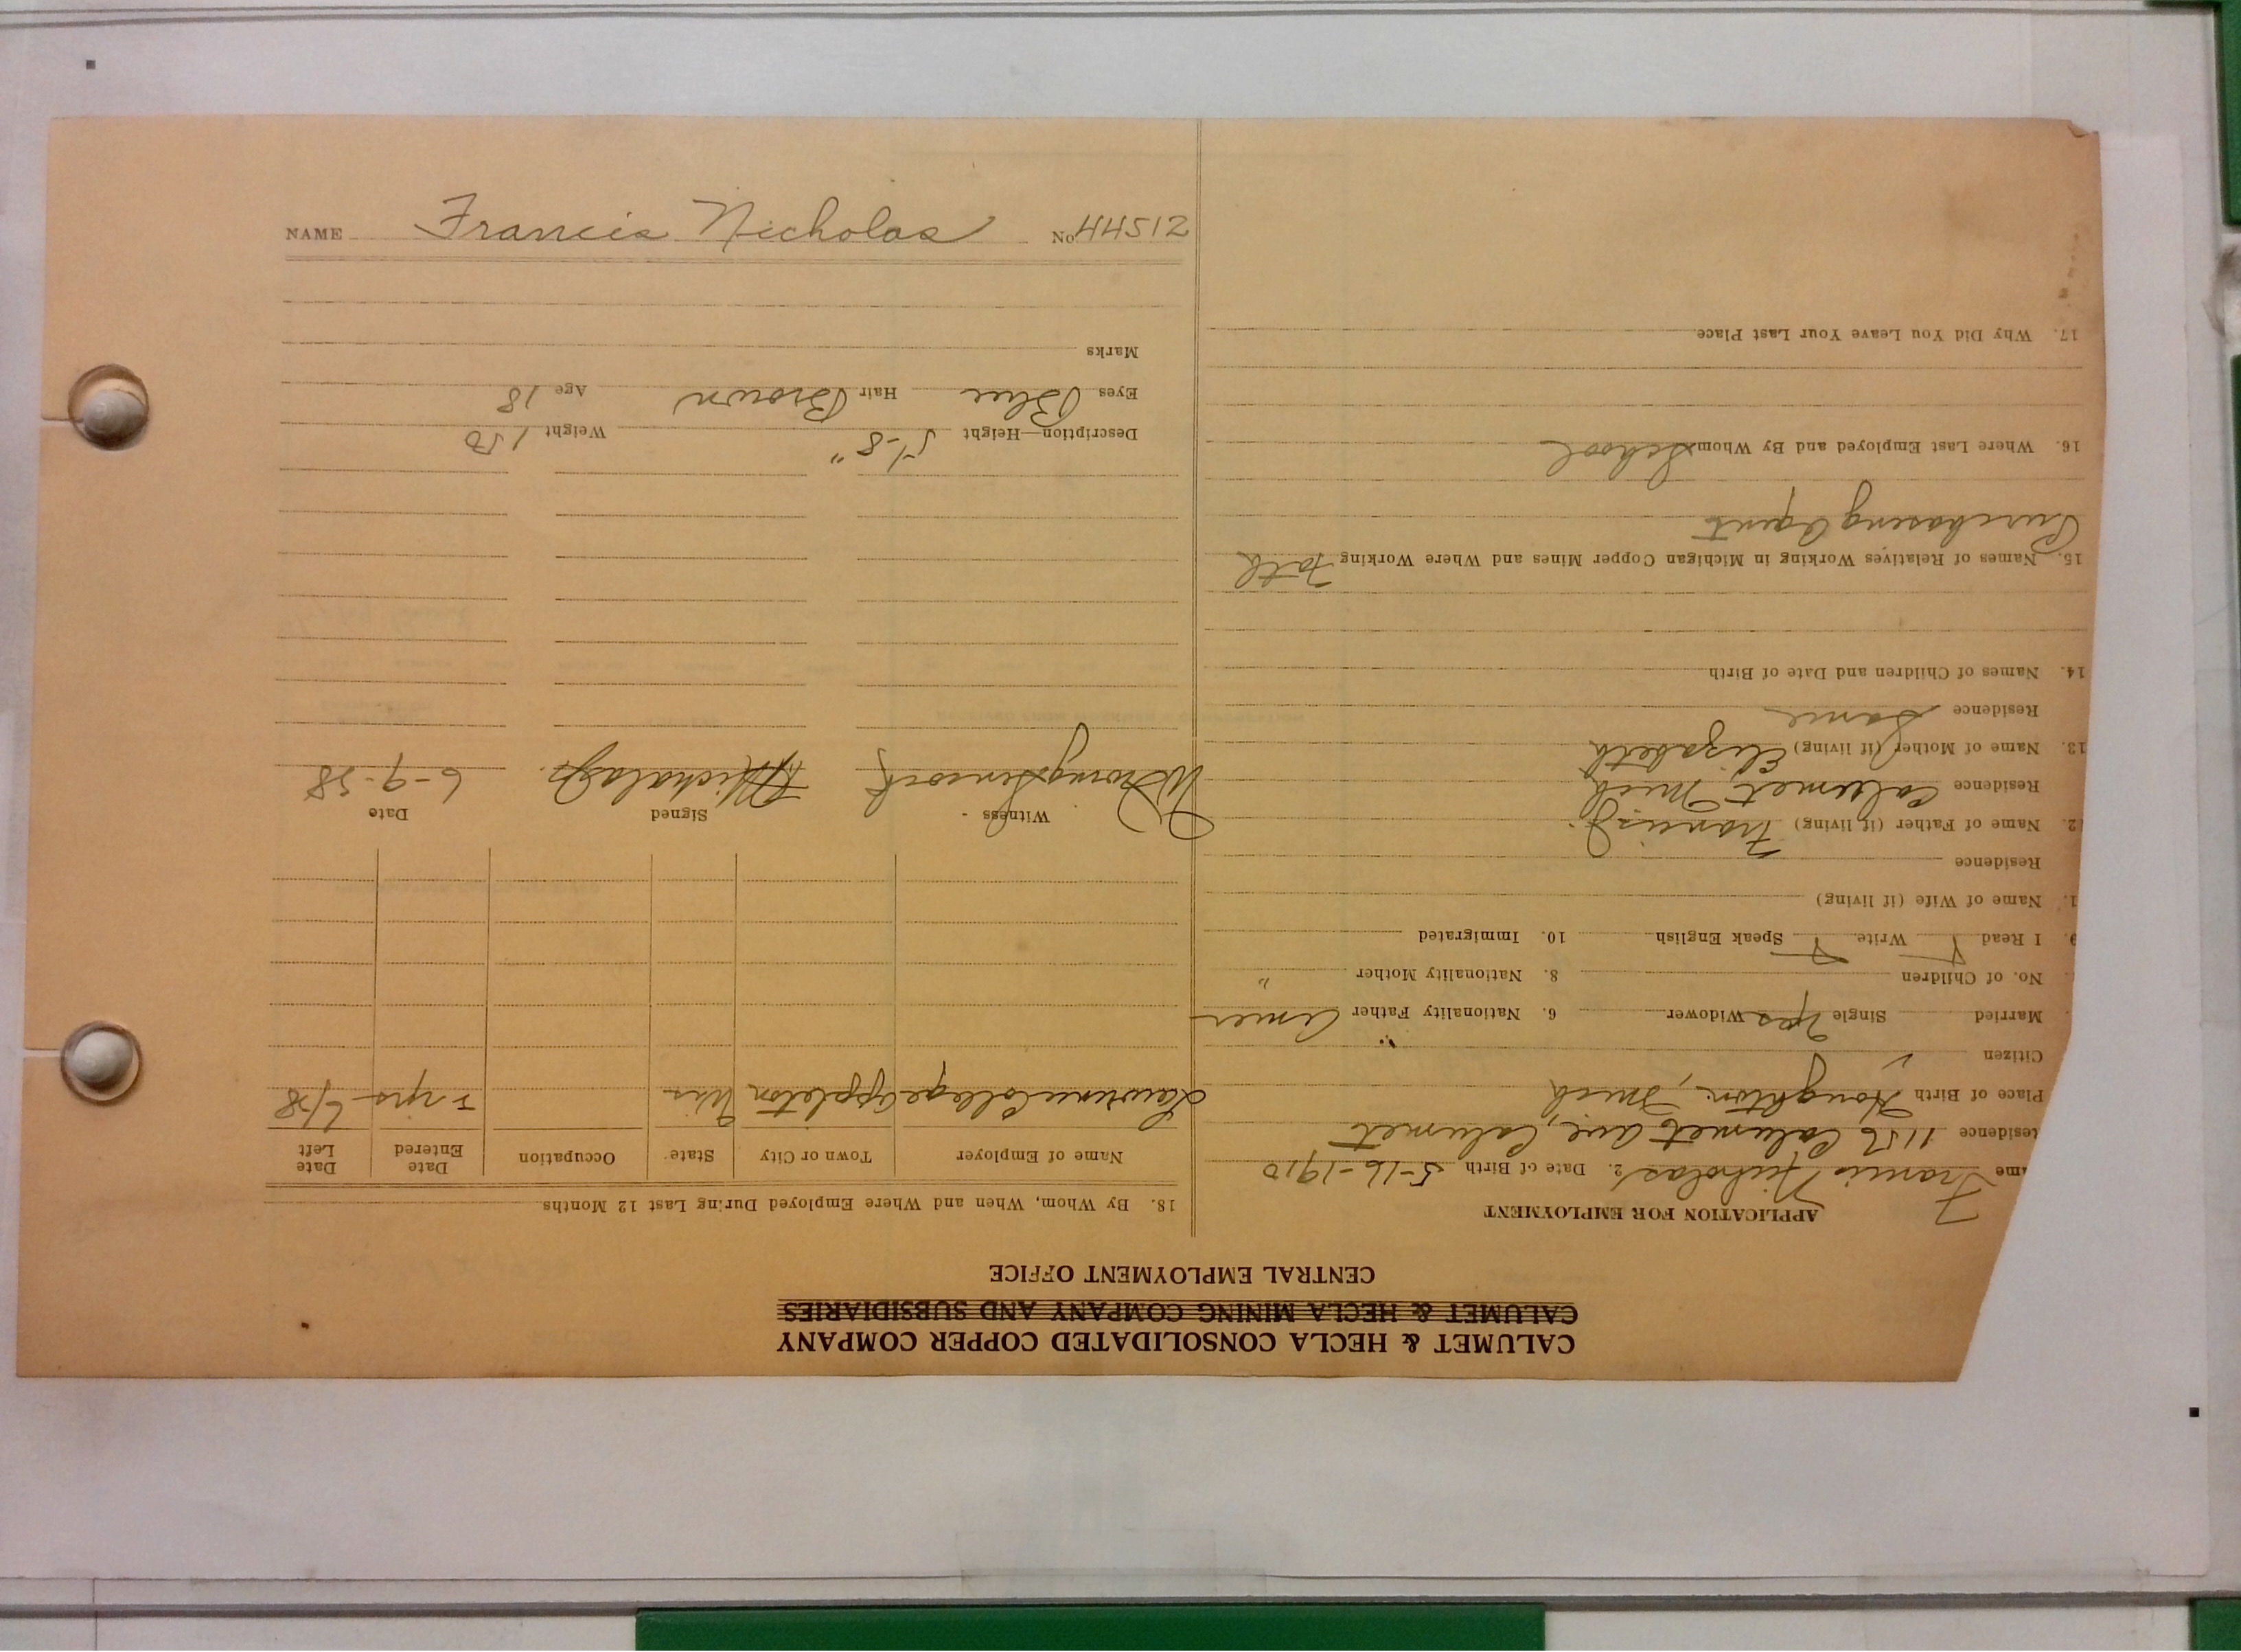 NAME Francis Nicholas No. 44512
CALUMET & HECLA CONSOLIDATED COPPER COMPANY
CALUMET & HECLA MINING COMPANY AND SUBSIDIARIES
CENTRAL EMPLOYMENT OFFICE
APPLICATION FOR EMPLOYMENT
ame Francis Nicholas 2. Date of Birth 5-16-1910
Residence 1156 Calumet Ave, Calumet
Place of Birth Houghton, Mich
Citizen
Married Single Yes Widower 6. Nationality Father Amer
No. of Children 8. Nationality Mother "
9. I Read Write Speak English 10. Immigrated
1. Name of Wife (if living)
Residence
2. Name of Father (if living) Francis J.
Residence Calumet, Mich
13. Name of Mother (if living) Elizabeth
Residence Same
14. Names of Children and Date of Birth
15. Names of Relatives Working in Michigan Copper Mines and Where Working Fath
Purchasing Agent
16. Where Last Employed and By Whom School
17. Why Did You Leave Your Last Place
18. By Whom, When and Where Employed During Last 12 Months
Name of Employer Town or City State Occupation Date Entered Date Left
Lawrence College Appleton Wis yrs 6/38
Witness Signed Date
Nicholas Jr. 6-9-38
Description—Height 5'-8" Weight 150
Eyes Blue Hair Brown Age 18
Marks